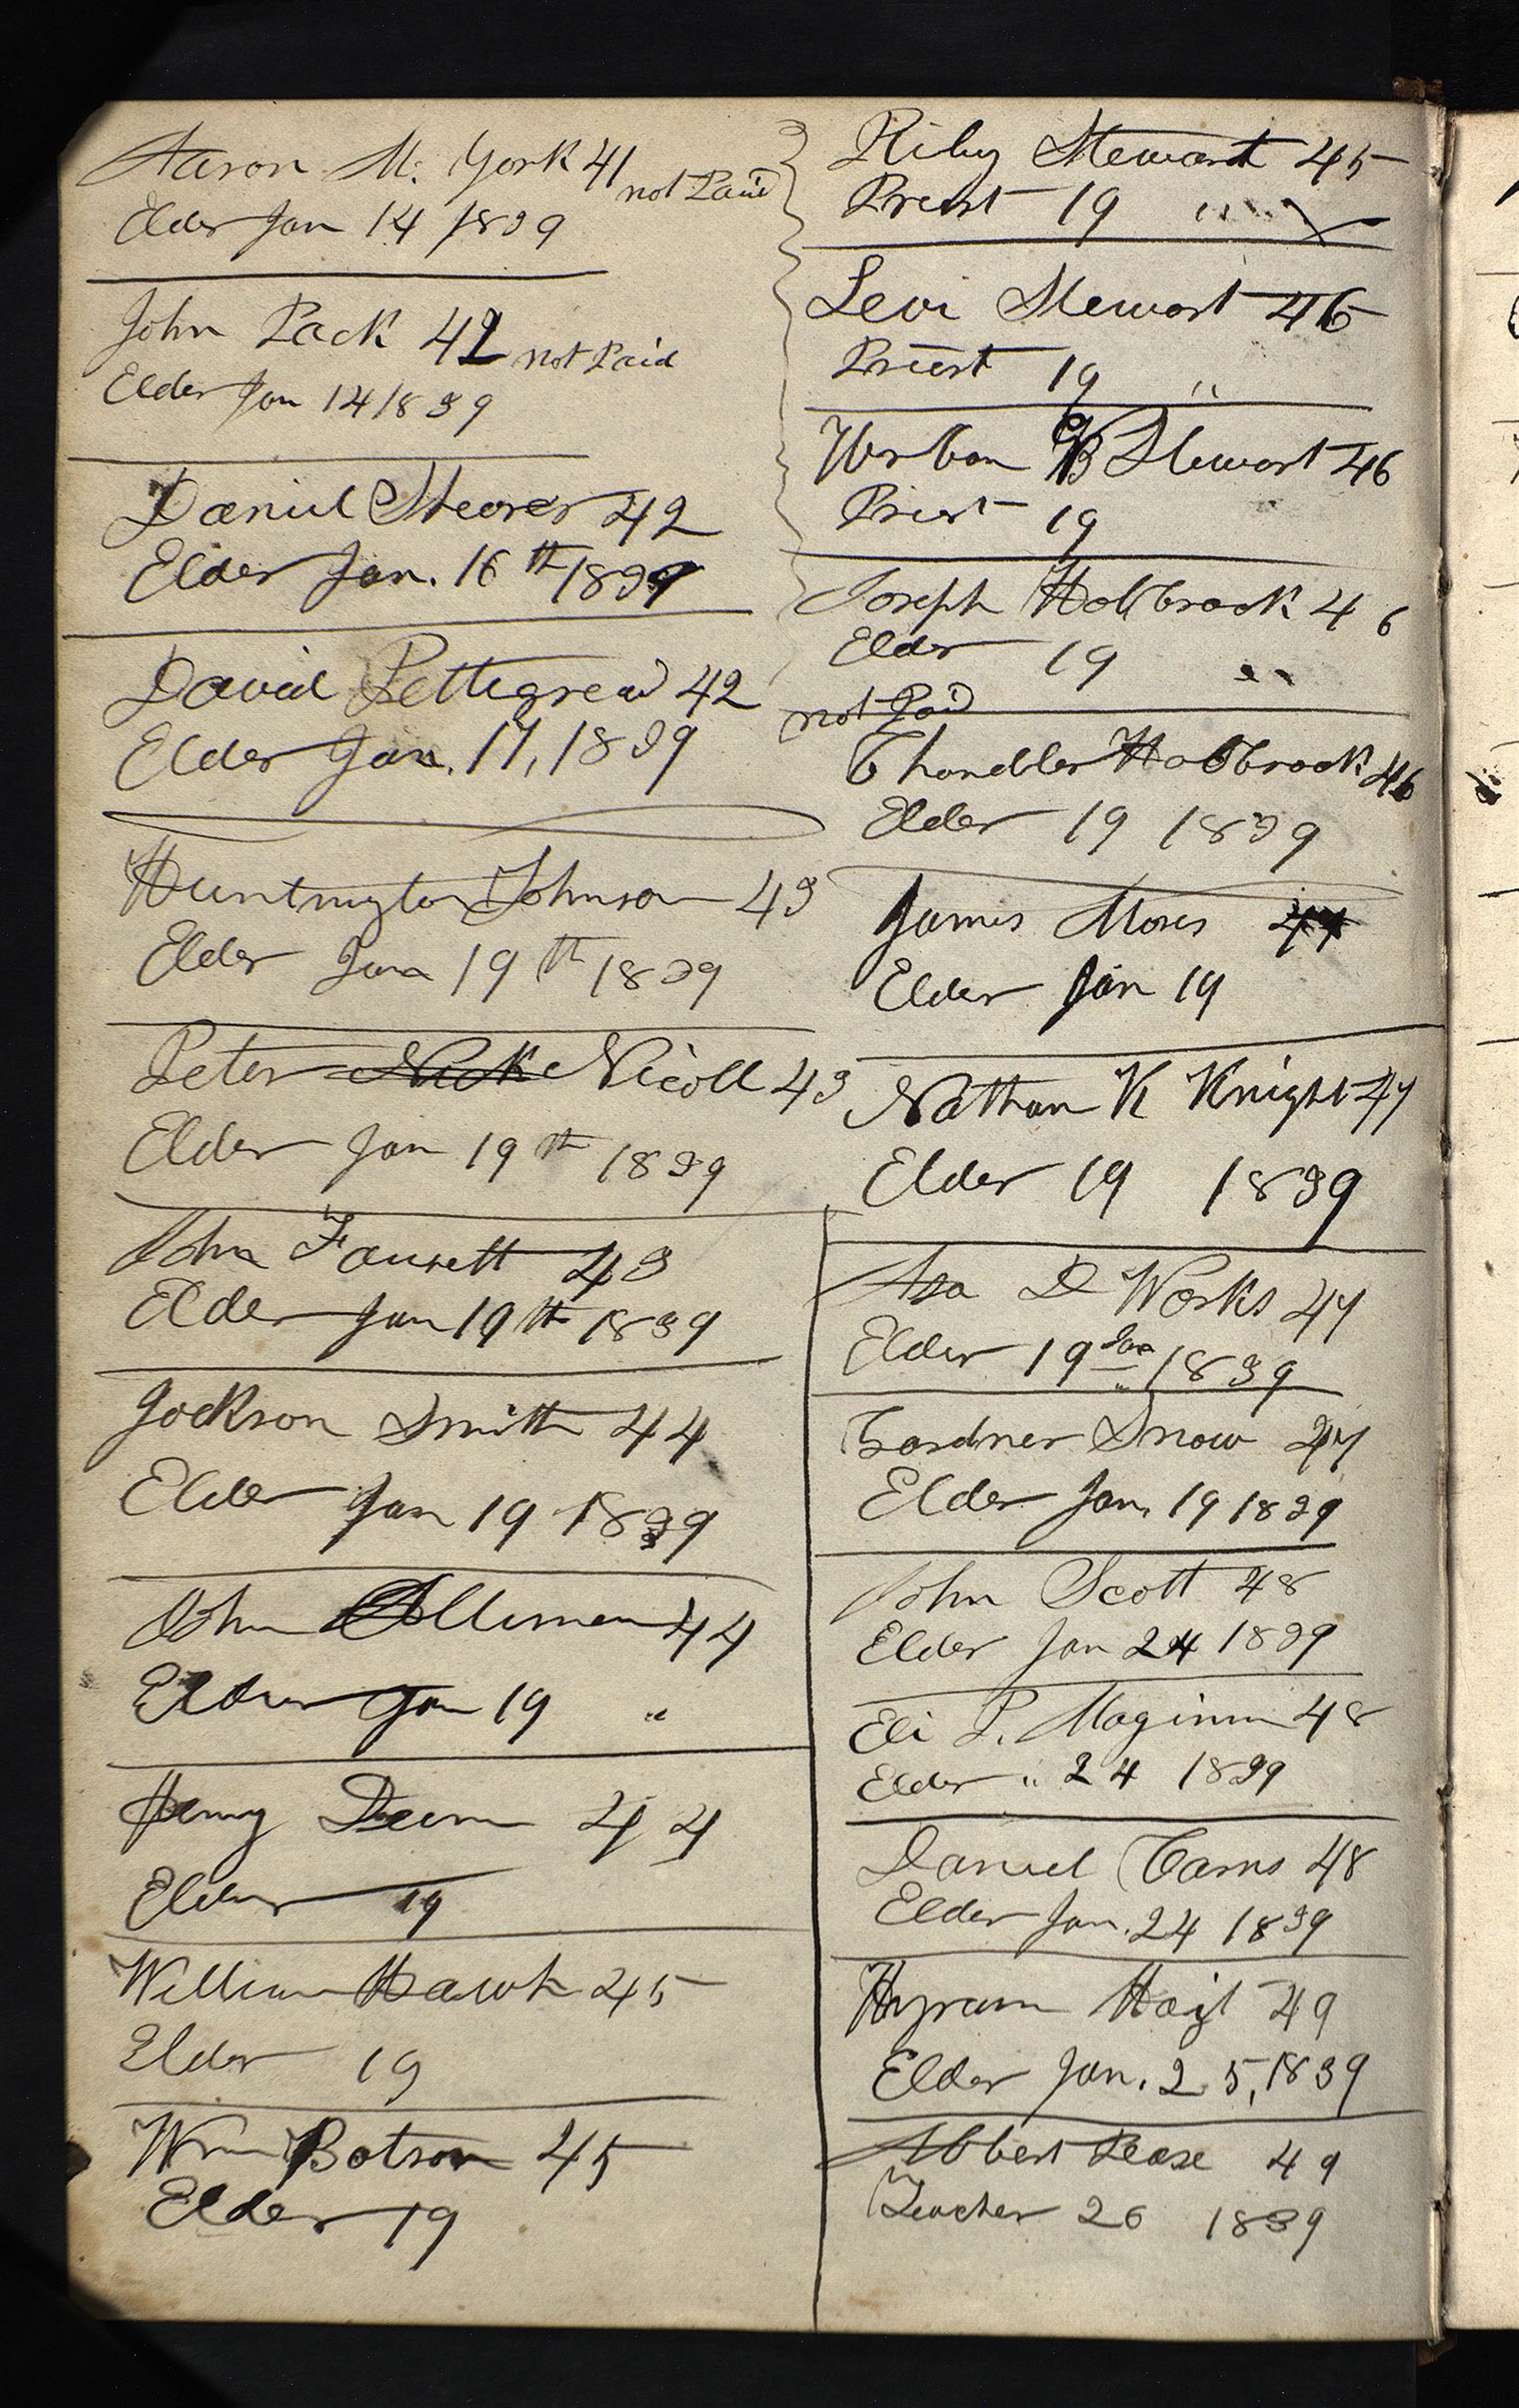 Aaron M. York 41 not Paid
Elder Jan 14 1839
John Pack 42 not Paid
Elder Jan 14 1839
Daniel Shearer 42
Elder Jan. 16th 1839
David Pettegrew 42
Elder Jan. 17, 1839
Huntington Johnson 43
Elder Jan 19th 1839
Peter Nick Nicoll 43
Elder Jan 19th 1839
John Fausett 43
Elder Jan 19th 1839
Jackson Smith 44
Elder Jan 19 1839
John Olliman 44
Elder Jan 19 "
Henry Deem 44
Elder 19
William Hawk 45
Elder 19
Wm Batson 45
Elder 19
Riley Stewart 45
Priest 19 "
Levi Stewart 46
Priest 19 "
Urban B Stewart 46
Priest 19
Joseph Holbrook 46
Elder 19 "
not Paid
Chandler Holbrook 46
Elder 19 1839
James Moses 47
Elder Jan 19
Nathan K Knight 47
Elder 19 1839
Asa D Works 47
Elder 19 Jan 1839
Gardner Snow 47
Elder Jan. 19 1839
John Scott 48
Elder Jan 24 1839
Eli P. Maginn 48
Elder " 24 1839
Daniel Carns 48
Elder Jan. 24 1839
Hyram Hoyt 49
Elder Jan. 25, 1839
Abbert Pease 49
Teacher 26 1839